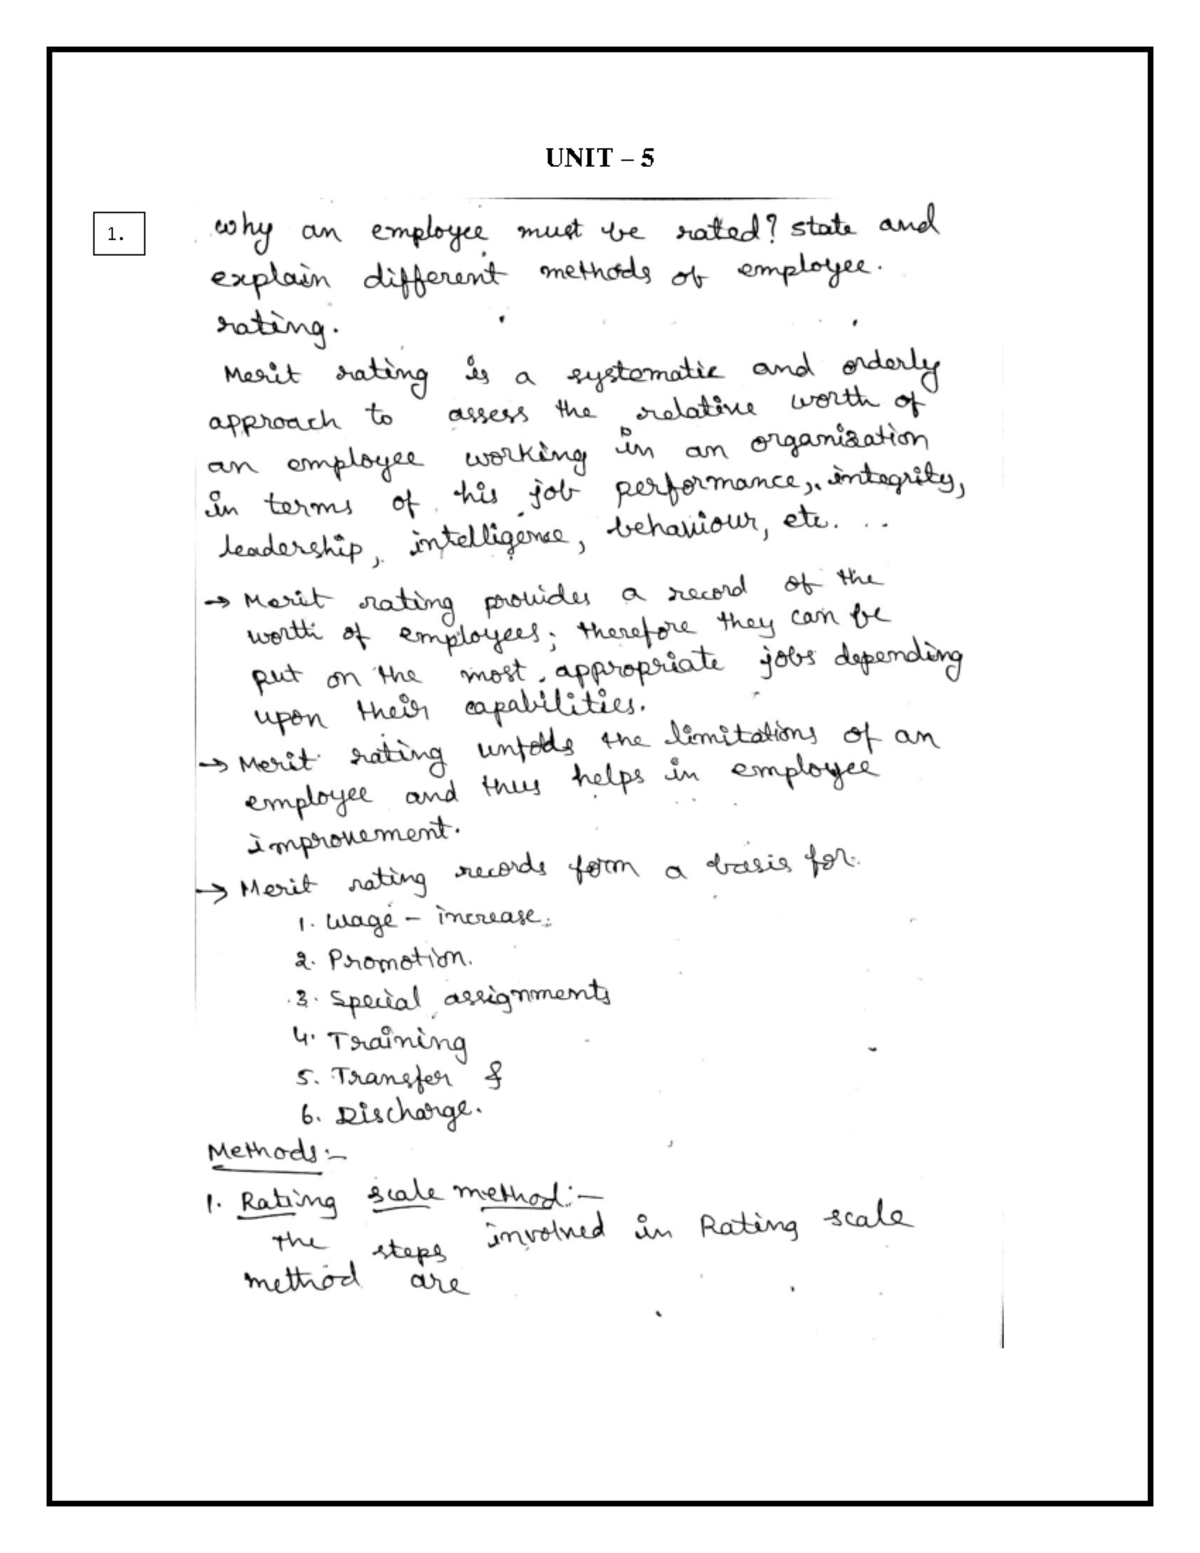 UNIT – 5
1.
Why an employee must be rated? State and
explain different methods of employee.
rating.
Merit rating is a systematic and orderly
approach to assess the relative worth of
an employee working in an organization
in terms of his job performance, integrity,
leadership, intelligence, behaviour, etc...
→ Merit rating provides a record of the
worth of employees; therefore they can be
put on the most appropriate jobs depending
upon their capabilities.
→ Merit rating unfolds the limitations of an
employee and thus helps in employee
improvement.
→ Merit rating records form a basis for.
1. Wage – increase.
2. Promotion.
3. Special assignments
4. Training
5. Transfer &
6. Discharge.
Methods:–
1. Rating scale method:–
The steps involved in Rating scale
method are